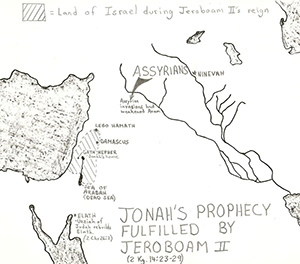 = Land of Israel during Jeroboam II's reign
ASSYRIANS
NINEVAH
Assyrian
invasions had
weakened Aram
LEBO HAMATH
DAMASCUS
GATH HEPHER
Jonah's home
SEA OF
ARABAH
(DEAD SEA)
ELATH
Uzziah of
Judah rebuilds
Elath.
JONAH'S PROPHECY
FULFILLED BY
JEROBOAM II
(2 Kg. 14:23-29)